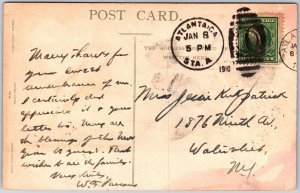 POST CARD.
ATLANTA, GA.
JAN 8
5 PM
191
STA. A.
Many thanks for
your sweet
remembrance of me
I certainly did
appreciate it & your
letter too. May all
the blessings of the New
Year be yours. Best
wishes to all the family.
Very truly,
W. F. Parsons
Miss Jessie Kirkpatrick
1876 Ninth Av.,
Watervliet,
NY.